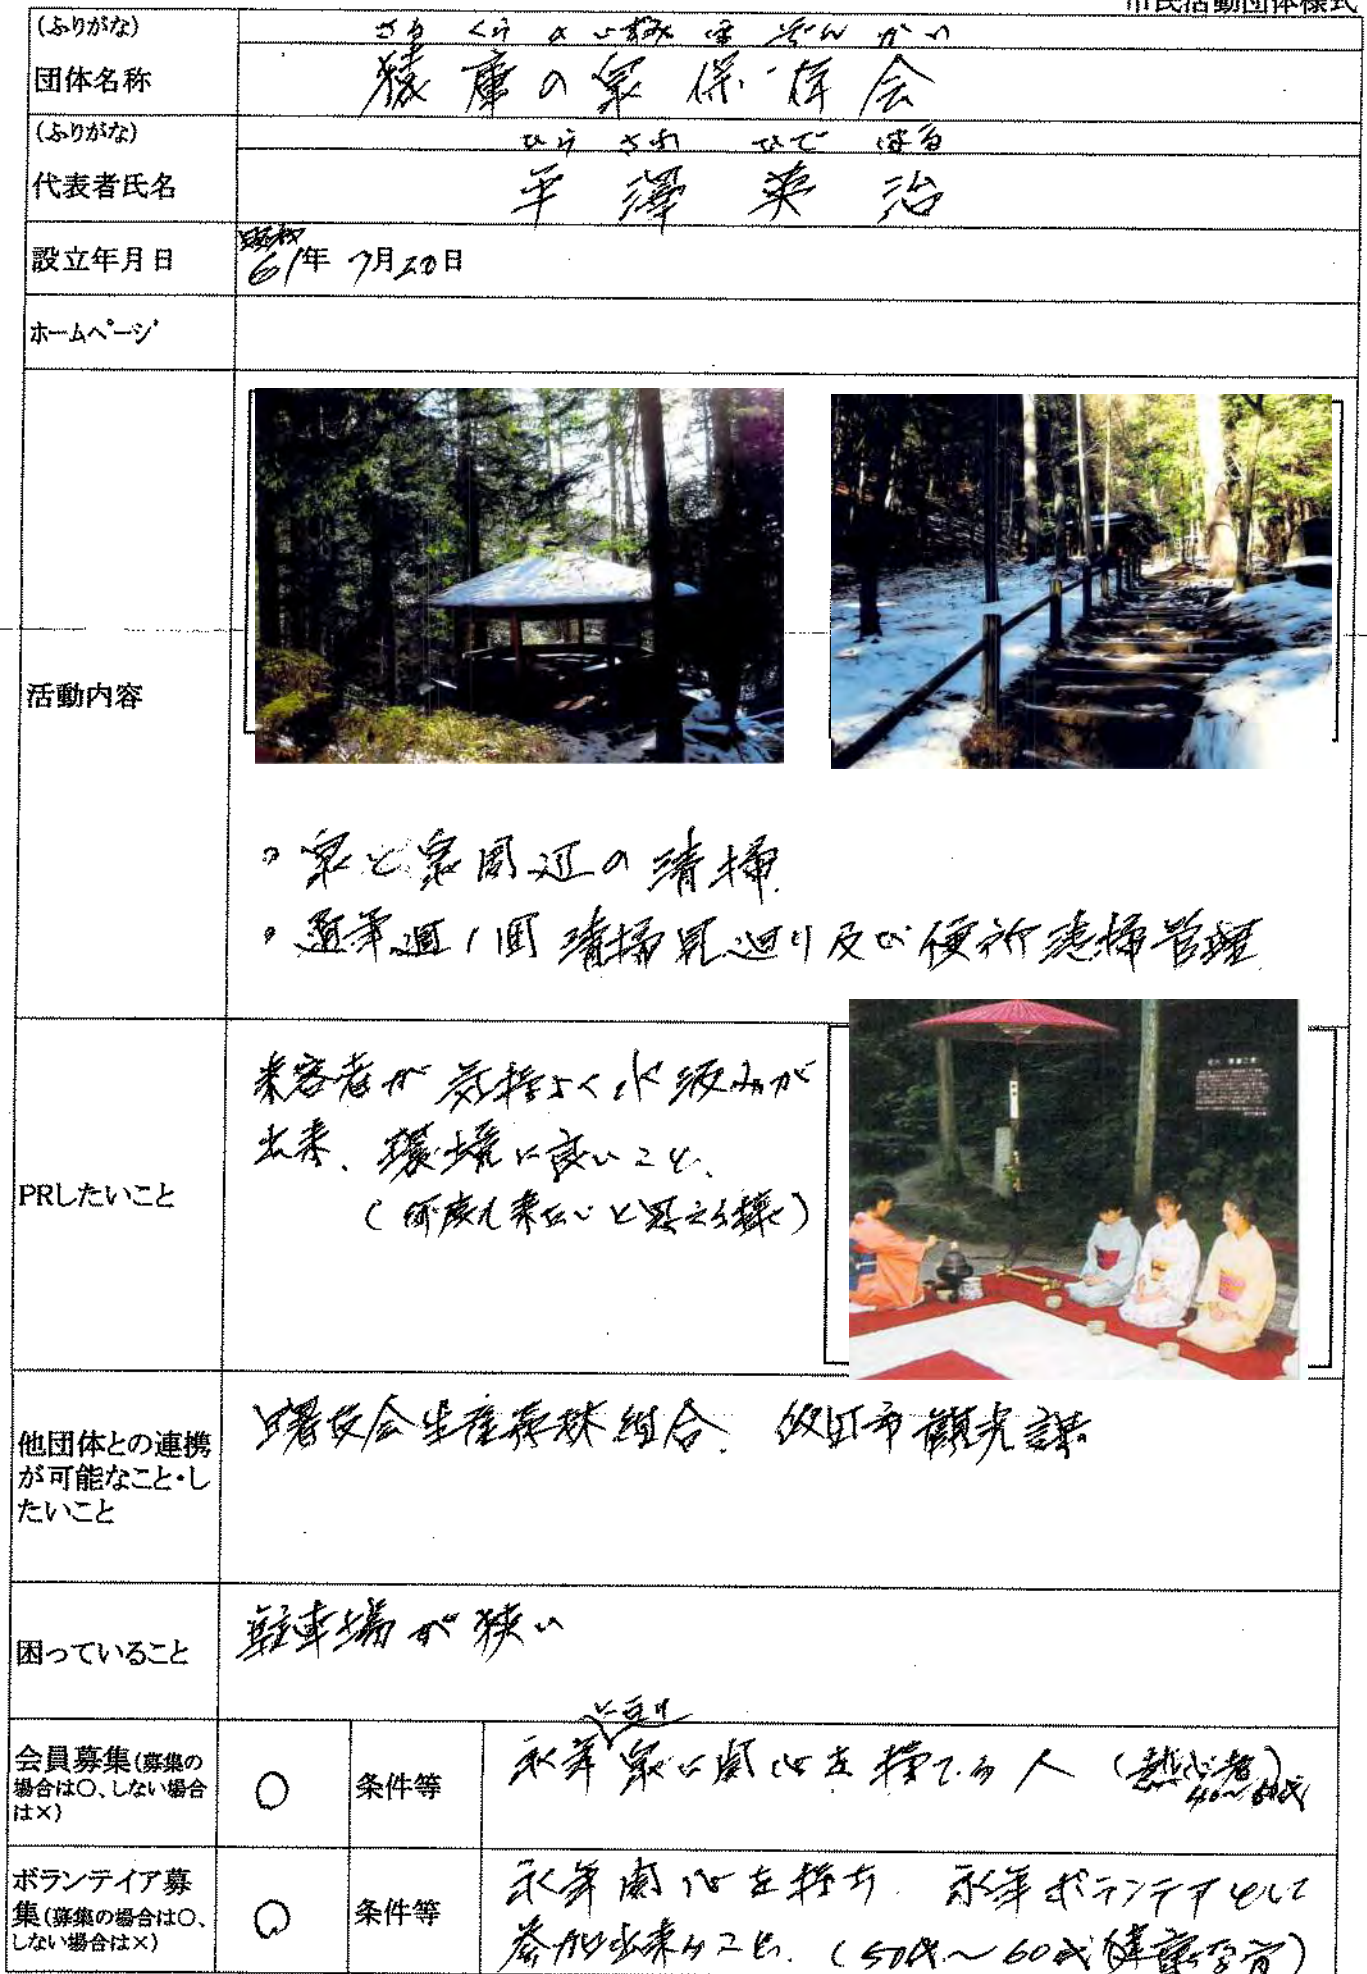 市民活動団体様式
(ふりがな)
さる くら の いずみ ほ ぞん かい
団体名称
猿庫の泉保存会
(ふりがな)
ひら さわ ひで はる
代表者氏名
平澤英治
設立年月日
昭和
61年 7月20日
ホームページ
活動内容
。泉と泉周辺の清掃
。通年週1回 清掃見廻り及び便所清掃管理
PRしたいこと
来客者が気持よく水汲みが
出来、環境に良いこと、
(何度も来たいと思える様に)
他団体との連携
が可能なこと・し
たいこと
曙友会生産森林組合、飯田市観光課
困っていること
駐車場が狭い
会員募集(募集の
場合は〇、しない場合
は×)
〇
条件等
に亘り
永年泉に関心を持てる人
40〜60代
ボランテイア募
集(募集の場合は〇、
しない場合は×)
〇
条件等
永年関心を持ち、永年ボランテアとして
参加出来ること、(50代〜60代